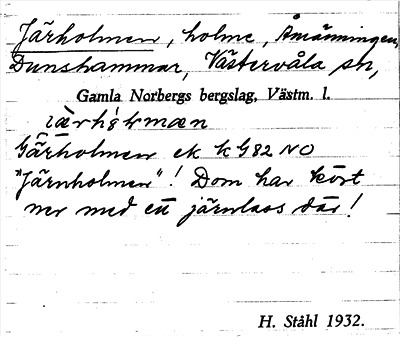 Järholmen, holme, Åmänningen,
Dunshammar, Västervåla sn,
Gamla Norbergs bergslag, Västm. l.
Gärholmen ek k G82 NO
"Järnholmen"! Dom har kört
ner med ett järnlass där!
H. Ståhl 1932.